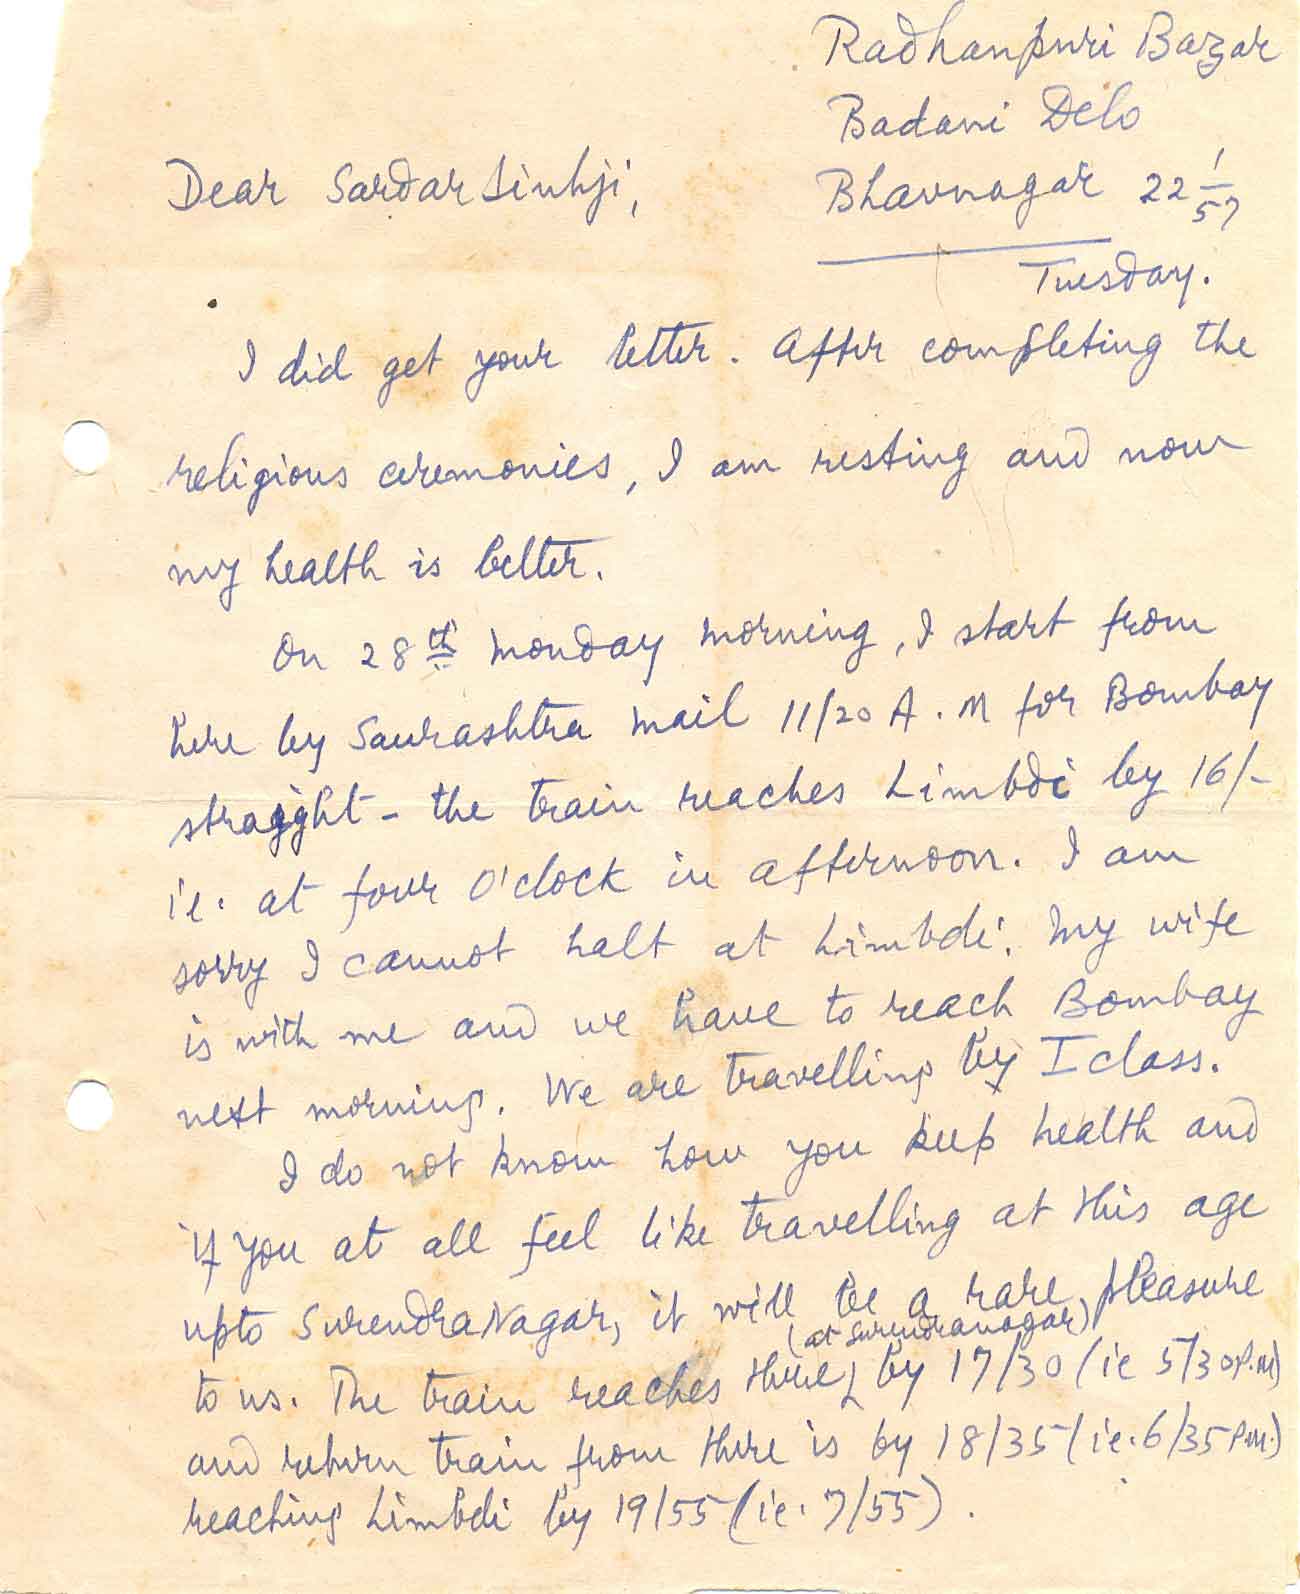 Radhanpuri Bazar
Badani Delo
Bhavnagar 22 1/57
Tuesday.
Dear Sardarsinhji,
I did get your letter. After completing the
religious ceremonies, I am resting and now
my health is better.
On 28th Monday morning, I start from
here by Saurashtra Mail 11/20 A.M for Bombay
straight - the train reaches Limbdi by 16/-
ie. at four O'clock in afternoon. I am
sorry I cannot halt at Limbdi. My wife
is with me and we have to reach Bombay
next morning. We are travelling by I class.
I do not know how you keep health and
if you at all feel like travelling at this age
upto SurendraNagar, it will be a rare pleasure
(at Surendranagar)
to us. The train reaches there, by 17/30 (ie 5/30 P.M)
and return train from there is by 18/35 (ie. 6/35 P.M.)
reaching Limbdi by 19/55 (ie. 7/55).